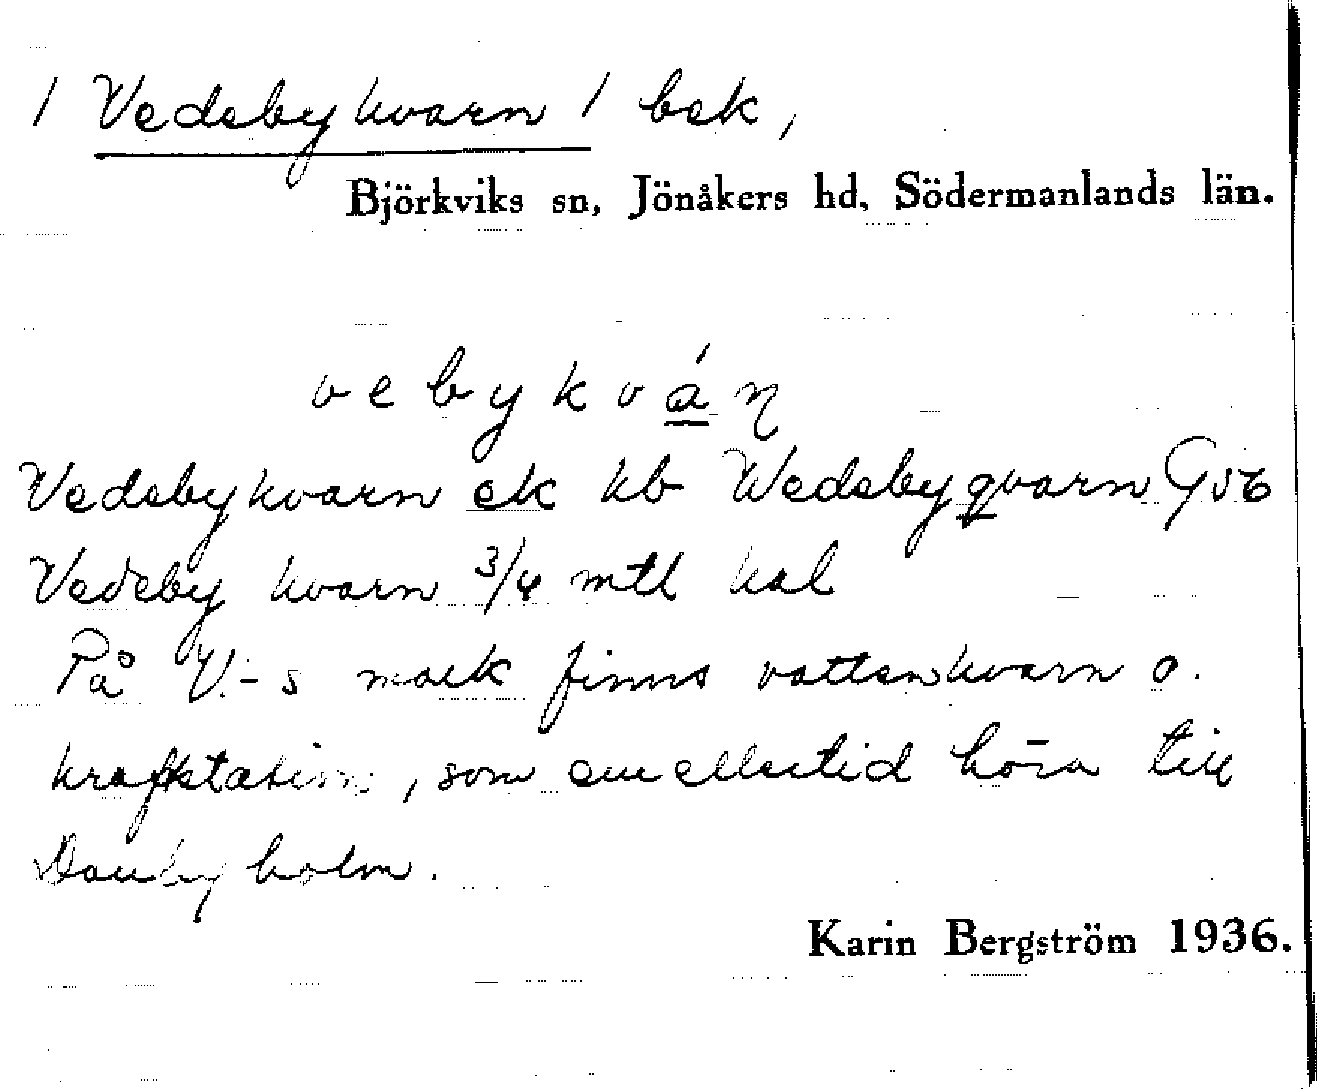 / Vedebykvarn / bek,
Björkviks sn, Jönåkers hd, Södermanlands län.
v e b y k v á ņ
Vedebykvarn ek kb Wedebyqvarn G
Vedeby kvarn 3/4 mtl kal
På V.-s mark finns vattenkvarn o.
kraftstation, som emellertid höra till
Danbyholm.
Karin Bergström 1936.